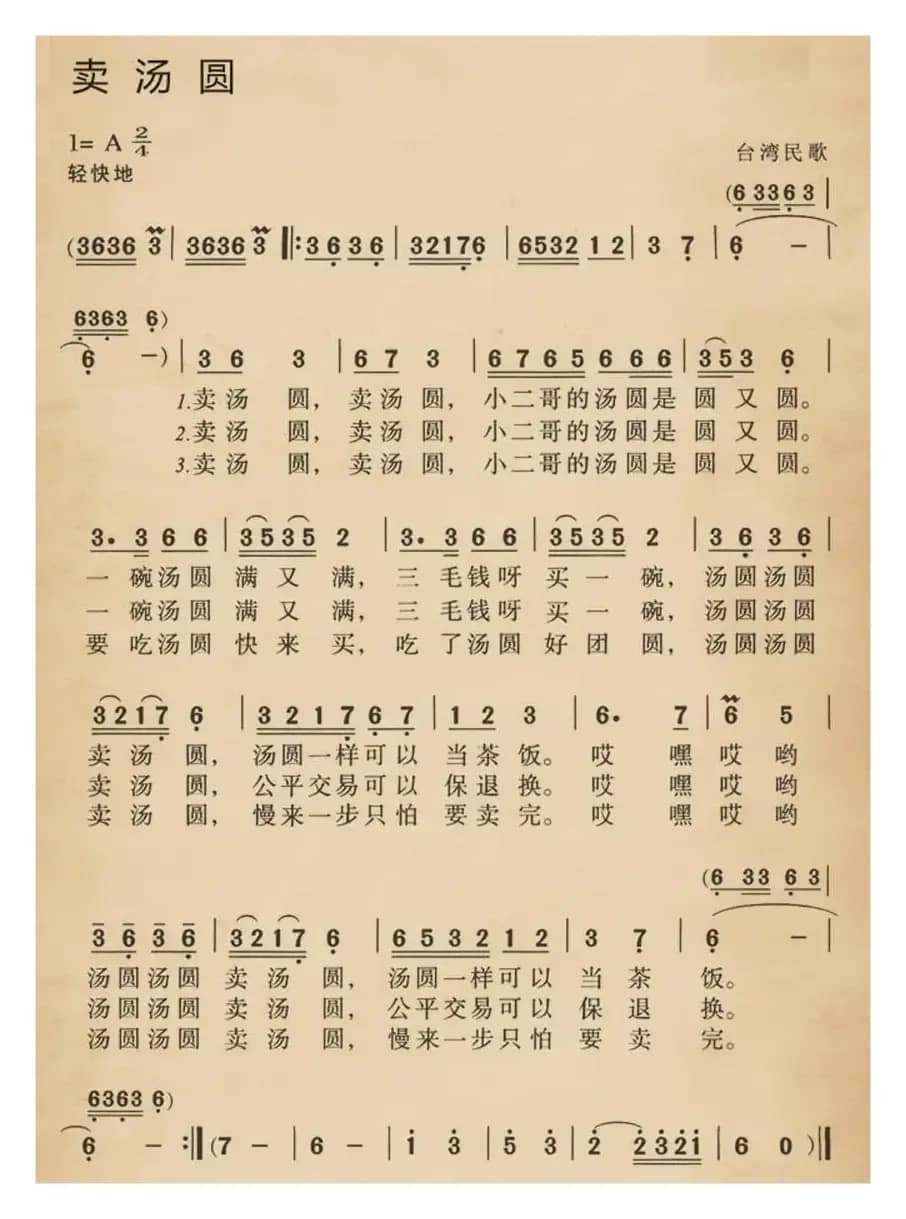 卖汤圆
1= A 2/4
轻快地
台湾民歌
(6 33 6 3 |
(3636 3 | 3636 3 ‖: 3 6 3 6 | 32176 | 6532 1 2 | 3 7 | 6 - |
6363 6)
6 -) | 3 6 3 | 6 7 3 | 6 7 6 5 6 6 6 | 3 5 3 6 |
1.卖汤 圆，卖汤 圆，小二哥的汤圆是 圆 又 圆。
2.卖汤 圆，卖汤 圆，小二哥的汤圆是 圆 又 圆。
3.卖汤 圆，卖汤 圆，小二哥的汤圆是 圆 又 圆。
3. 3 6 6 | 3535 2 | 3. 3 6 6 | 3535 2 | 3 6 3 6 |
一 碗汤圆 满 又 满，三 毛钱呀 买 一 碗，汤圆汤圆
一 碗汤圆 满 又 满，三 毛钱呀 买 一 碗，汤圆汤圆
要 吃汤圆 快 来 买，吃 了汤圆 好 团 圆，汤圆汤圆
3217 6 | 3 2 1 7 6 7 | 1 2 3 | 6. 7 | 6 5 |
卖 汤 圆，汤圆一样可以 当茶 饭。哎 嘿哎 哟
卖 汤 圆，公平交易可以 保退 换。哎 嘿哎 哟
卖 汤 圆，慢来一步只怕 要卖 完。哎 嘿哎 哟
(6 33 6 3 |
3 6 3 6 | 3217 6 | 6 5 3 2 1 2 | 3 7 | 6 - |
汤圆汤圆 卖 汤 圆，汤圆一样可以 当 茶 饭。
汤圆汤圆 卖 汤 圆，公平交易可以 保 退 换。
汤圆汤圆 卖 汤 圆，慢来一步只怕 要 卖 完。
6363 6)
6 - :‖ (7 - | 6 - | 1 3 | 5 3 | 2 2321 | 6 0 )‖